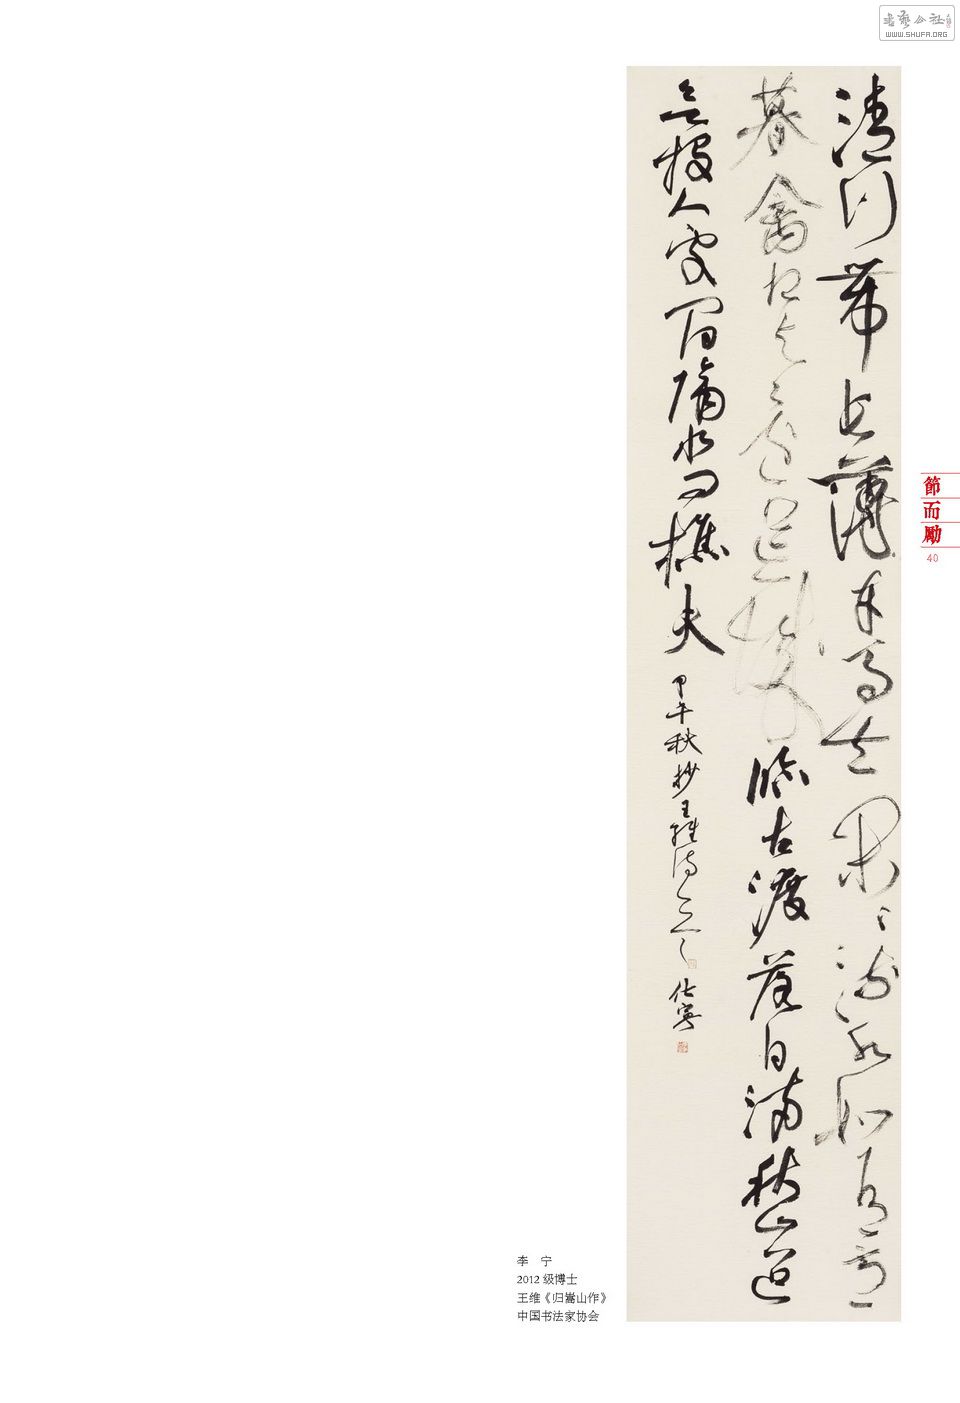 書藝公社
WWW.SHUFA.ORG
清川帶長薄車馬去閑〻流水如有意
暮禽相與還荒城臨古渡落日滿秋山
投人處宿隔水問樵夫
甲午秋抄王維詩
寧
節而勵
40
李 宁
2012 级博士
王维《归嵩山作》
中国书法家协会